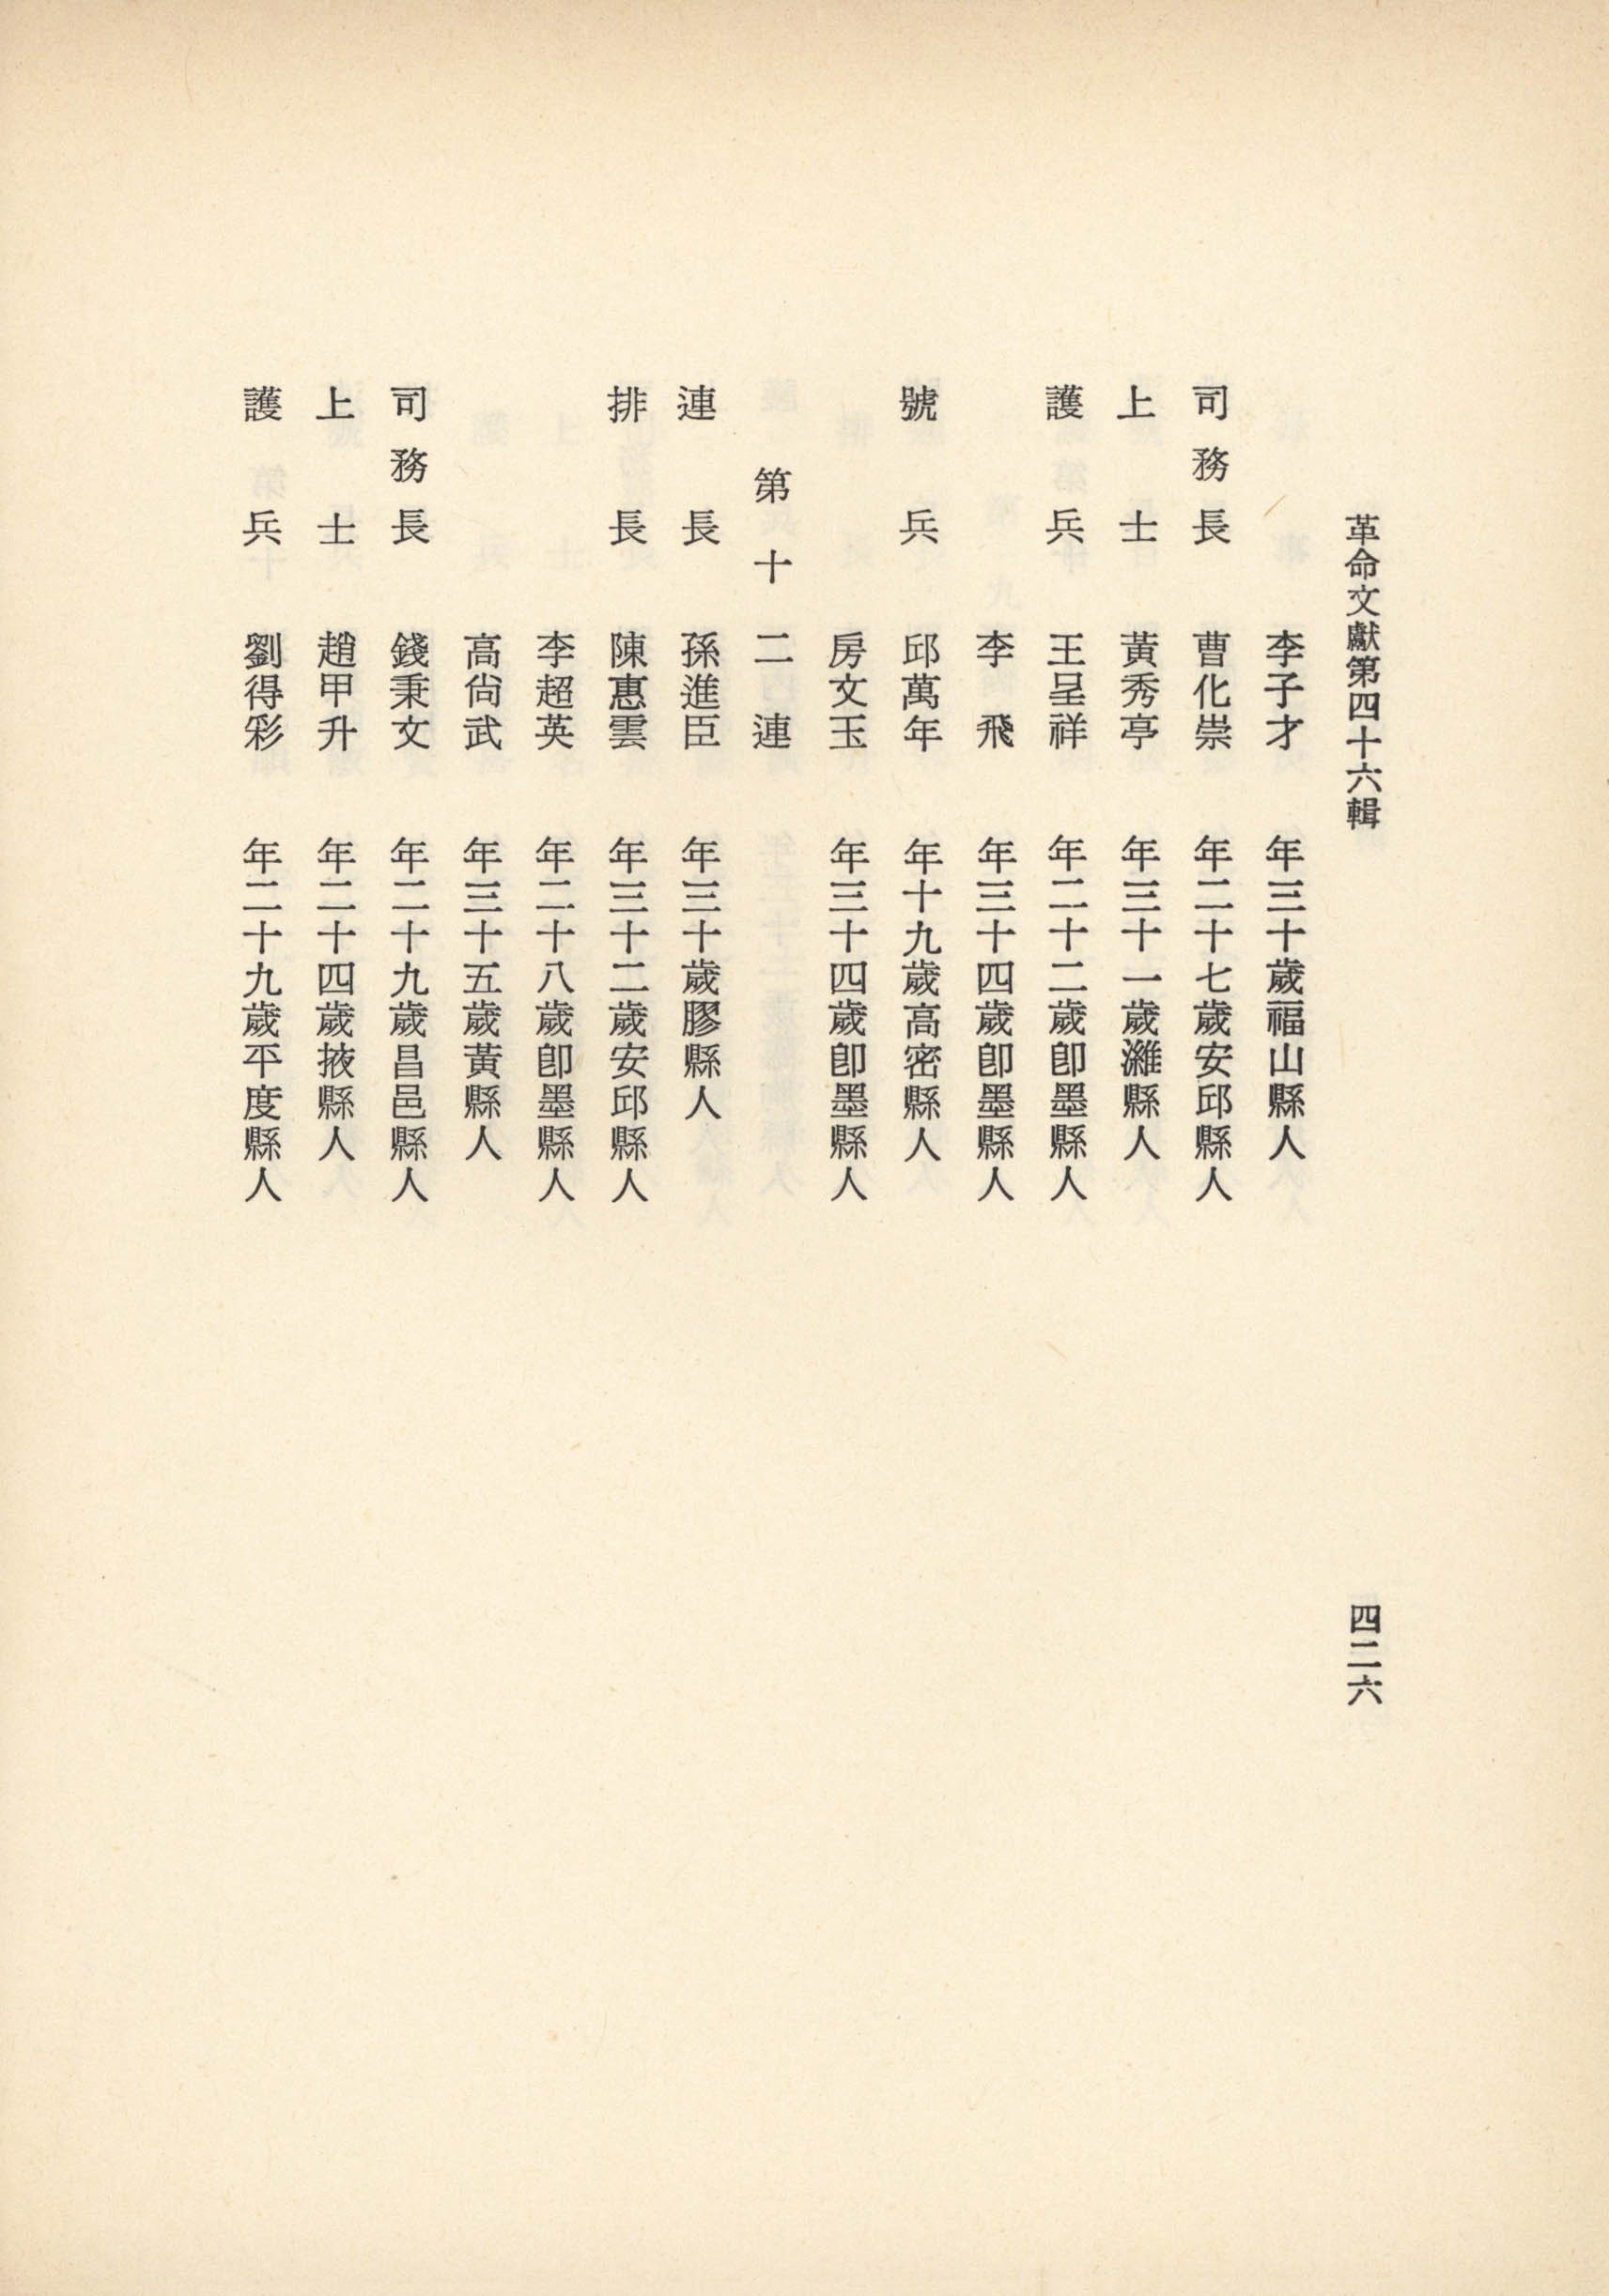 革命文獻第四十六輯
四二六
李子才 年三十歲福山縣人
司務長 曹化崇 年二十七歲安邱縣人
上士 黃秀亭 年三十一歲濰縣人
護兵 王呈祥 年二十二歲卽墨縣人
李飛 年三十四歲卽墨縣人
號兵 邱萬年 年十九歲高密縣人
房文玉 年三十四歲卽墨縣人
第十二連
連長 孫進臣 年三十歲膠縣人
排長 陳惠雲 年三十二歲安邱縣人
李超英 年二十八歲卽墨縣人
高尙武 年三十五歲黃縣人
司務長 錢秉文 年二十九歲昌邑縣人
上士 趙甲升 年二十四歲掖縣人
護兵 劉得彩 年二十九歲平度縣人